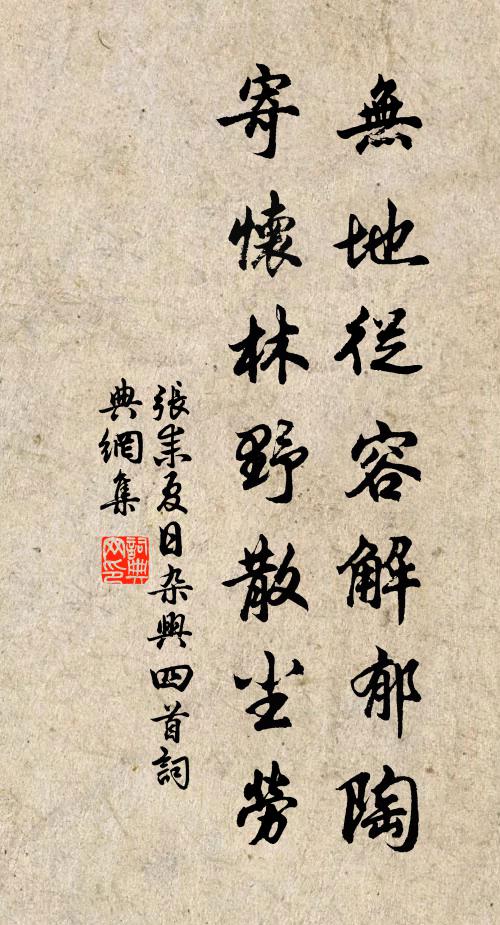 無地從容解郁陶
寄懷林野散尘勞
張耒夏日杂興四首詞
典網集
詞典
网印